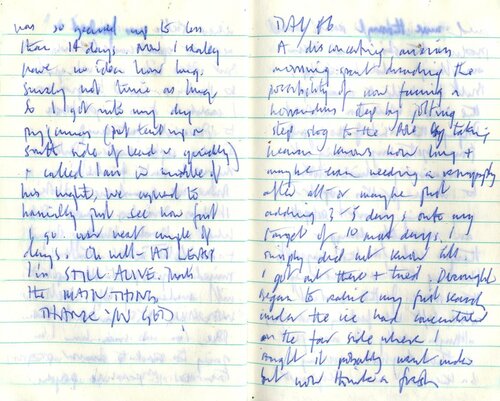 was so geared up to less
than 14 days. Now I really
have no idea how long.
Surely not twice as long.
So I got into my dry
(put tent up on
south side of lead v. quickly)
+ called Ian in middle of
his night, we agreed to
basically just see how fast
I go over next couple of
days. Oh well - AT LEAST
I'm STILL ALIVE. That's
the MAIN THING.
THANK YOU GOD!
DAY 86
A disconcerting anxious
morning spent dreading the
possibility of now facing a
horrendous step by jolting
step slog to the Pole taking
heaven knows how long +
maybe even needing a resupply
after all - or maybe just
adding 3-5 days onto my
target of 10 more days. I
simply did not know all.
I got out there + tried. Overnight
began to my first lead
under the ice had concentrated
on the far side where I
sought it probably went under
but now a fresh